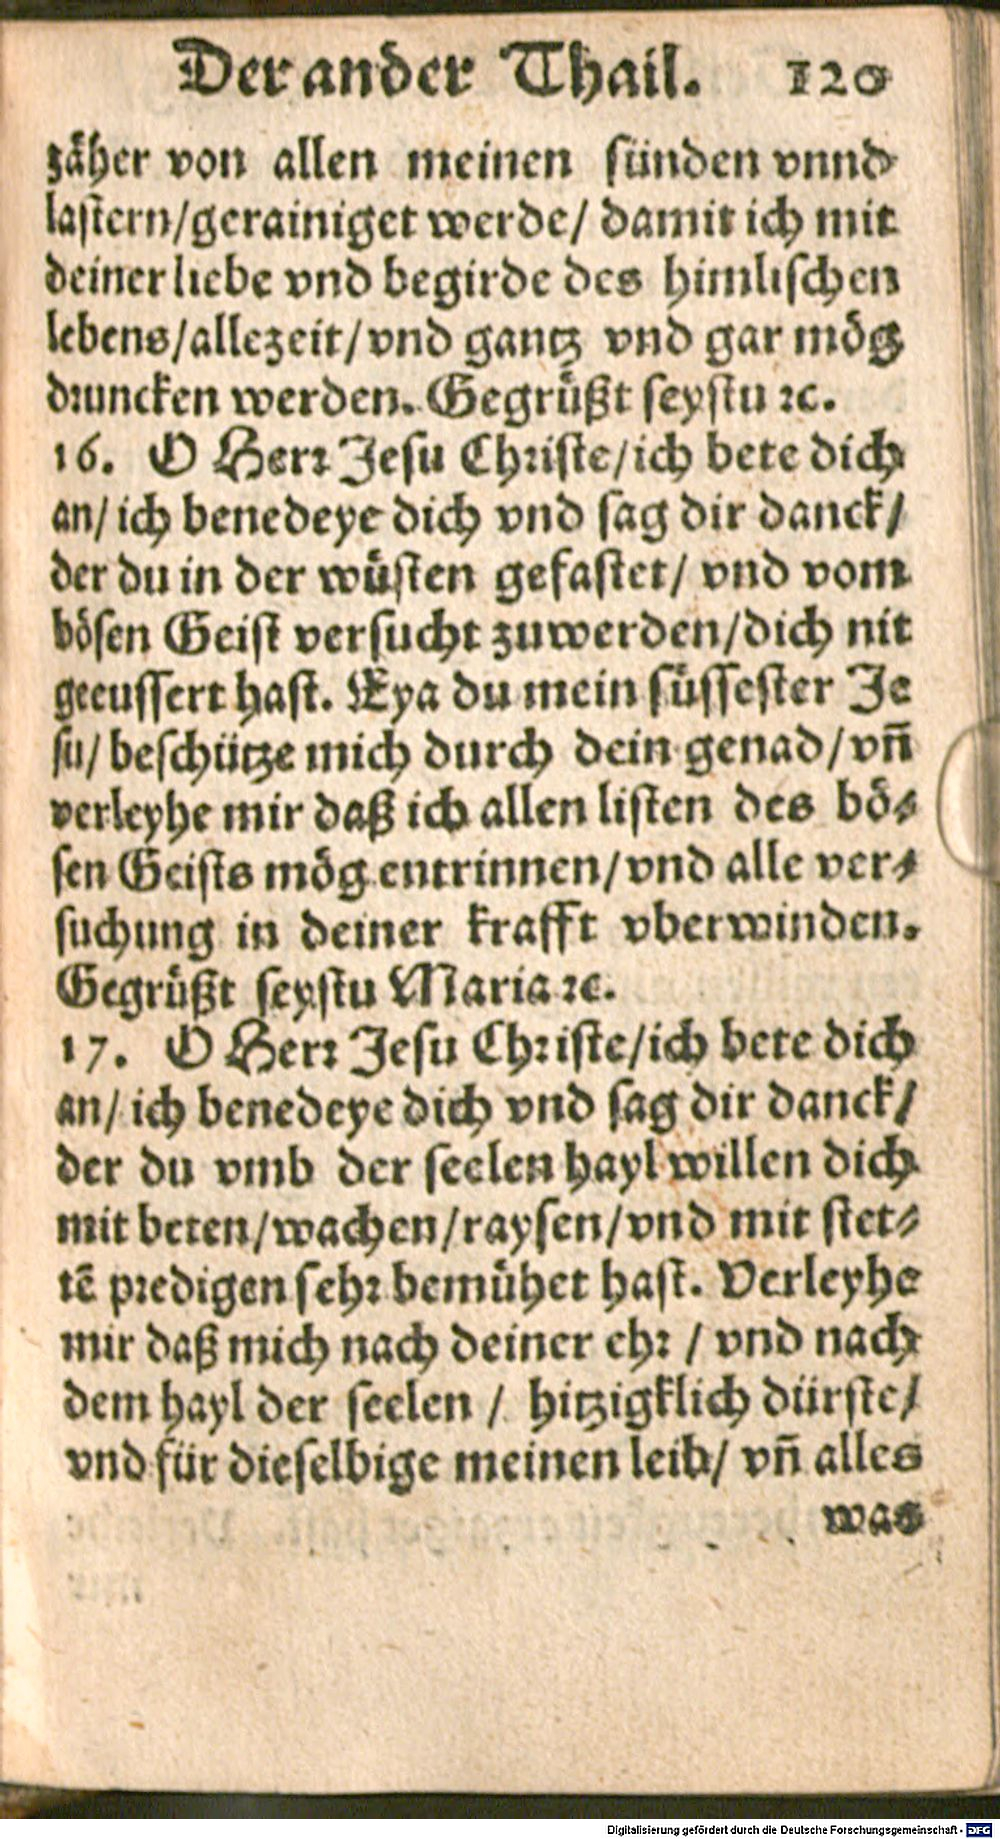 Der ander Thail. 120
zäher von allen meinen sünden vnnd
lastern/gerainiget werde/ damit ich mit
deiner liebe vnd begirde des himlischen
lebens/allezeit/vnd gantz vnd gar mög
druncken werden. Gegrüßt seystu ꝛc.
16. O Herr Jesu Christe/ich bete dich
an/ ich benedeye dich vnd sag dir danck/
der du in der wüsten gefastet/ vnd vom
bösen Geist versucht zuwerden/dich nit
geeussert hast. Eya du mein süssester Je
su/ beschütze mich durch dein genad/vn̄
verleyhe mir daß ich allen listen des bö⸗
sen Geists mög entrinnen/vnd alle ver⸗
suchung in deiner krafft vberwinden.
Gegrüßt seystu Maria ꝛc.
17. O Herr Jesu Christe/ich bete dich
an/ ich benedeye dich vnd sag dir danck/
der du vmb der seelen hayl willen dich
mit beten/wachen/raysen/vnd mit stet⸗
tē predigen sehr bemühet hast. Verleyhe
mir daß mich nach deiner ehr / vnd nach
dem hayl der seelen / hitzigklich dürste/
vnd für dieselbige meinen leib/ vn̄ alles
was
Digitalisierung gefördert durch die Deutsche Forschungsgemeinschaft - DFG